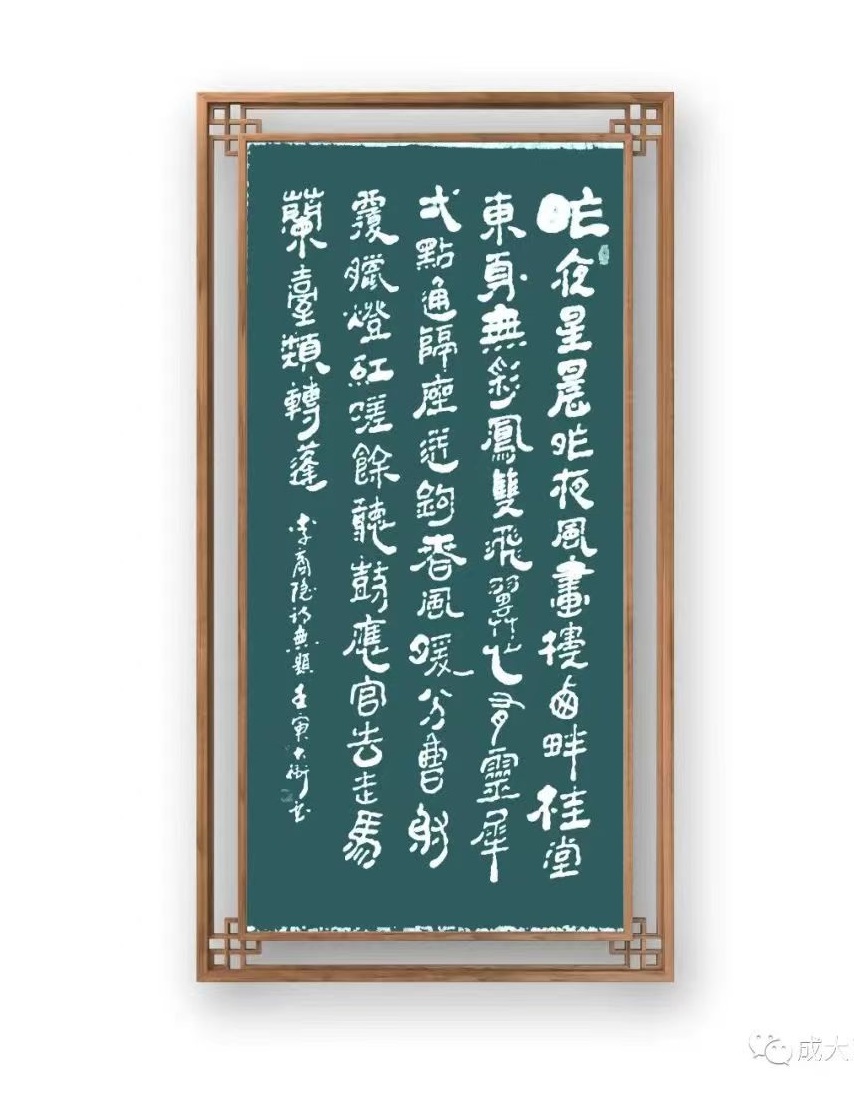 昨夜星晨昨夜風畫樓西畔桂堂
東身無彩鳳雙飛翼心有靈犀
弌點通隔座送鉤春風暖分曹射
覆臘燈紅嗟餘聽鼓應官去走馬
蘭臺類轉蓬
李商隐诗無題壬寅大衛书
成大